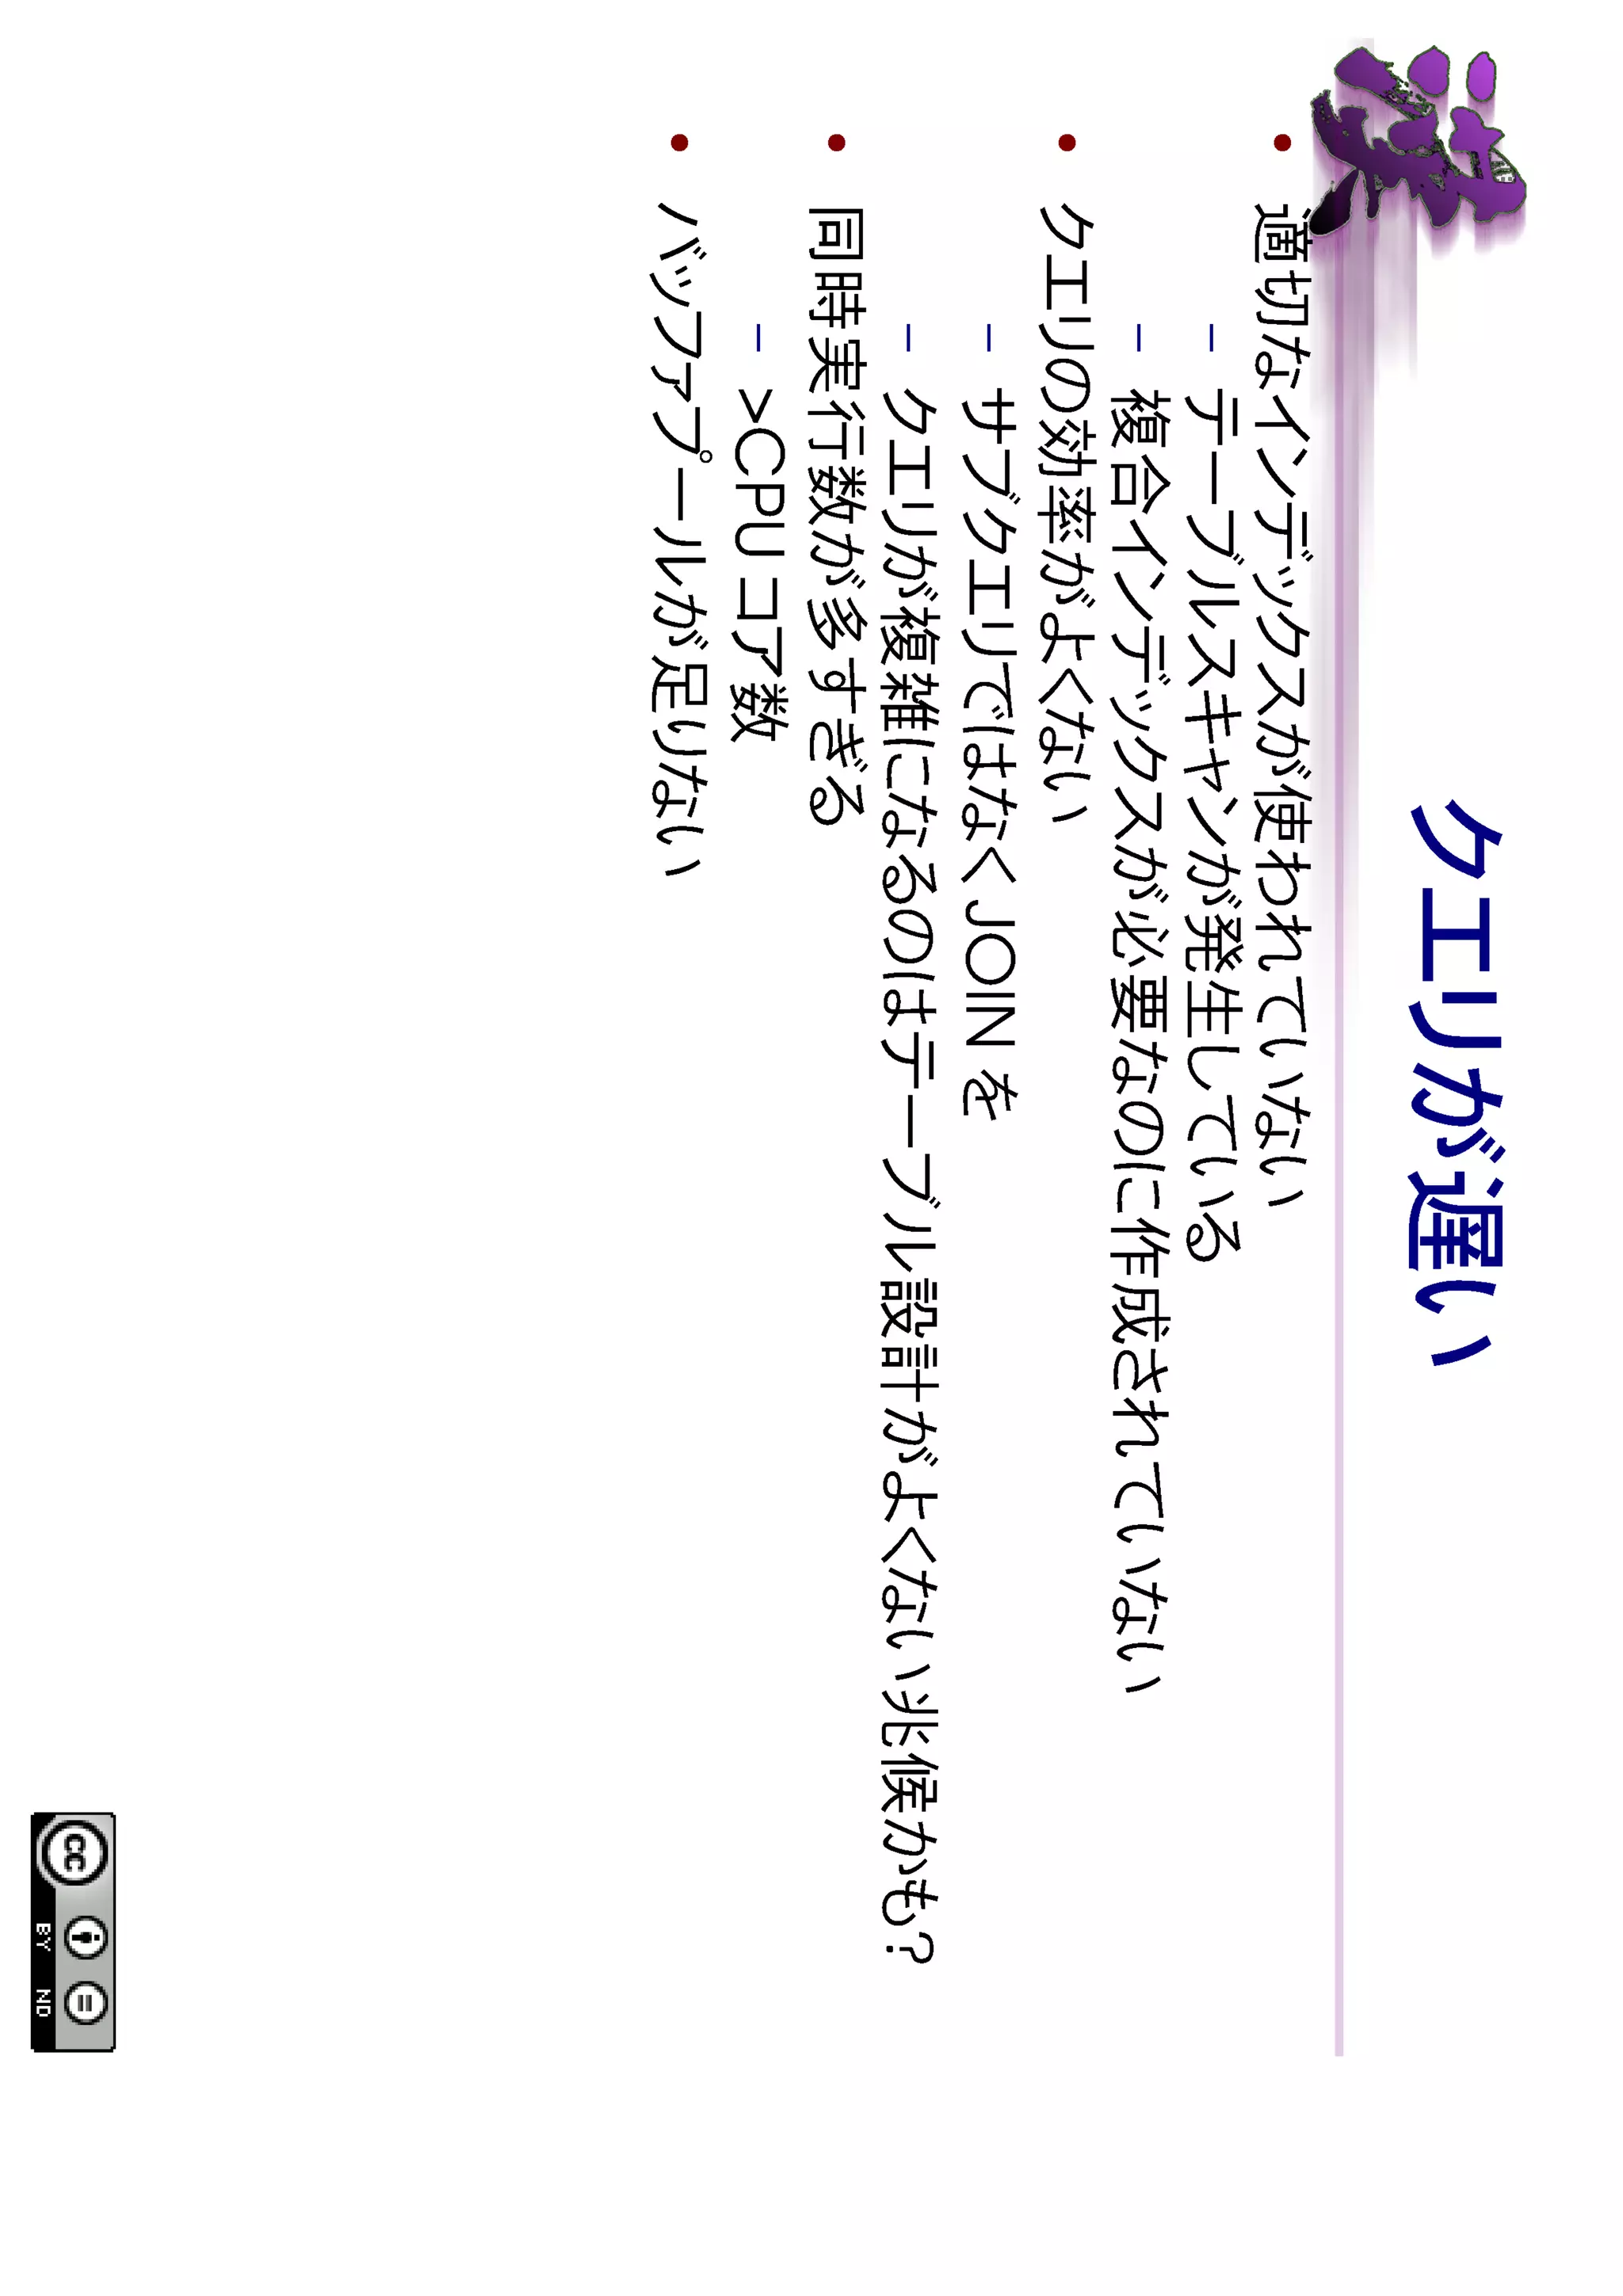 クエリが遅い
● 適切なインデックスが使われていない
– テーブルスキャンが発生している
– 複合インデックスが必要なのに作成されていない
● クエリの効率がよくない
– サブクエリではなく JOIN を
– クエリが複雑になるのはテーブル設計がよくない兆候かも？
● 同時実行数が多すぎる
– >CPU コア数
● バッファプールが足りない
cc BY ND